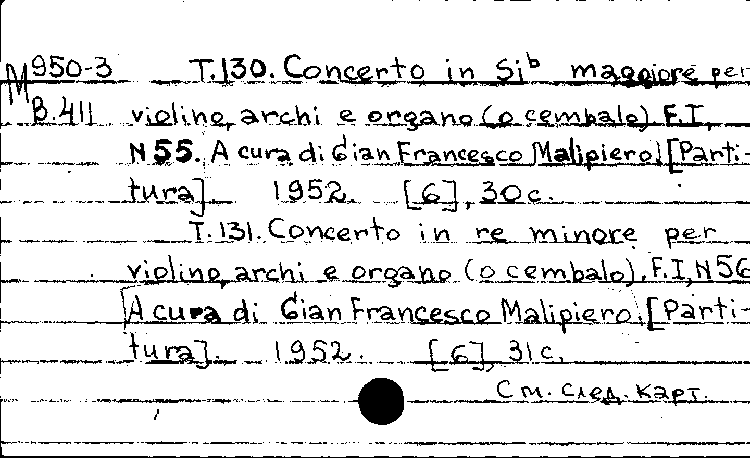 М950-3 Т.130. Concerto in Si♭ maggiore per
В.411 violino, archi e organo (o cembalo). F.I,
N55. A cura di Gian Francesco Malipiero. [Parti-
tura]. 1952. [6], 30 c.
Т.131. Concerto in re minore per
violino, archi e organo (o cembalo). F.I, N56
A cura di Gian Francesco Malipiero. [Parti-
tura]. 1952. [6], 31 c.
См. след. карт.